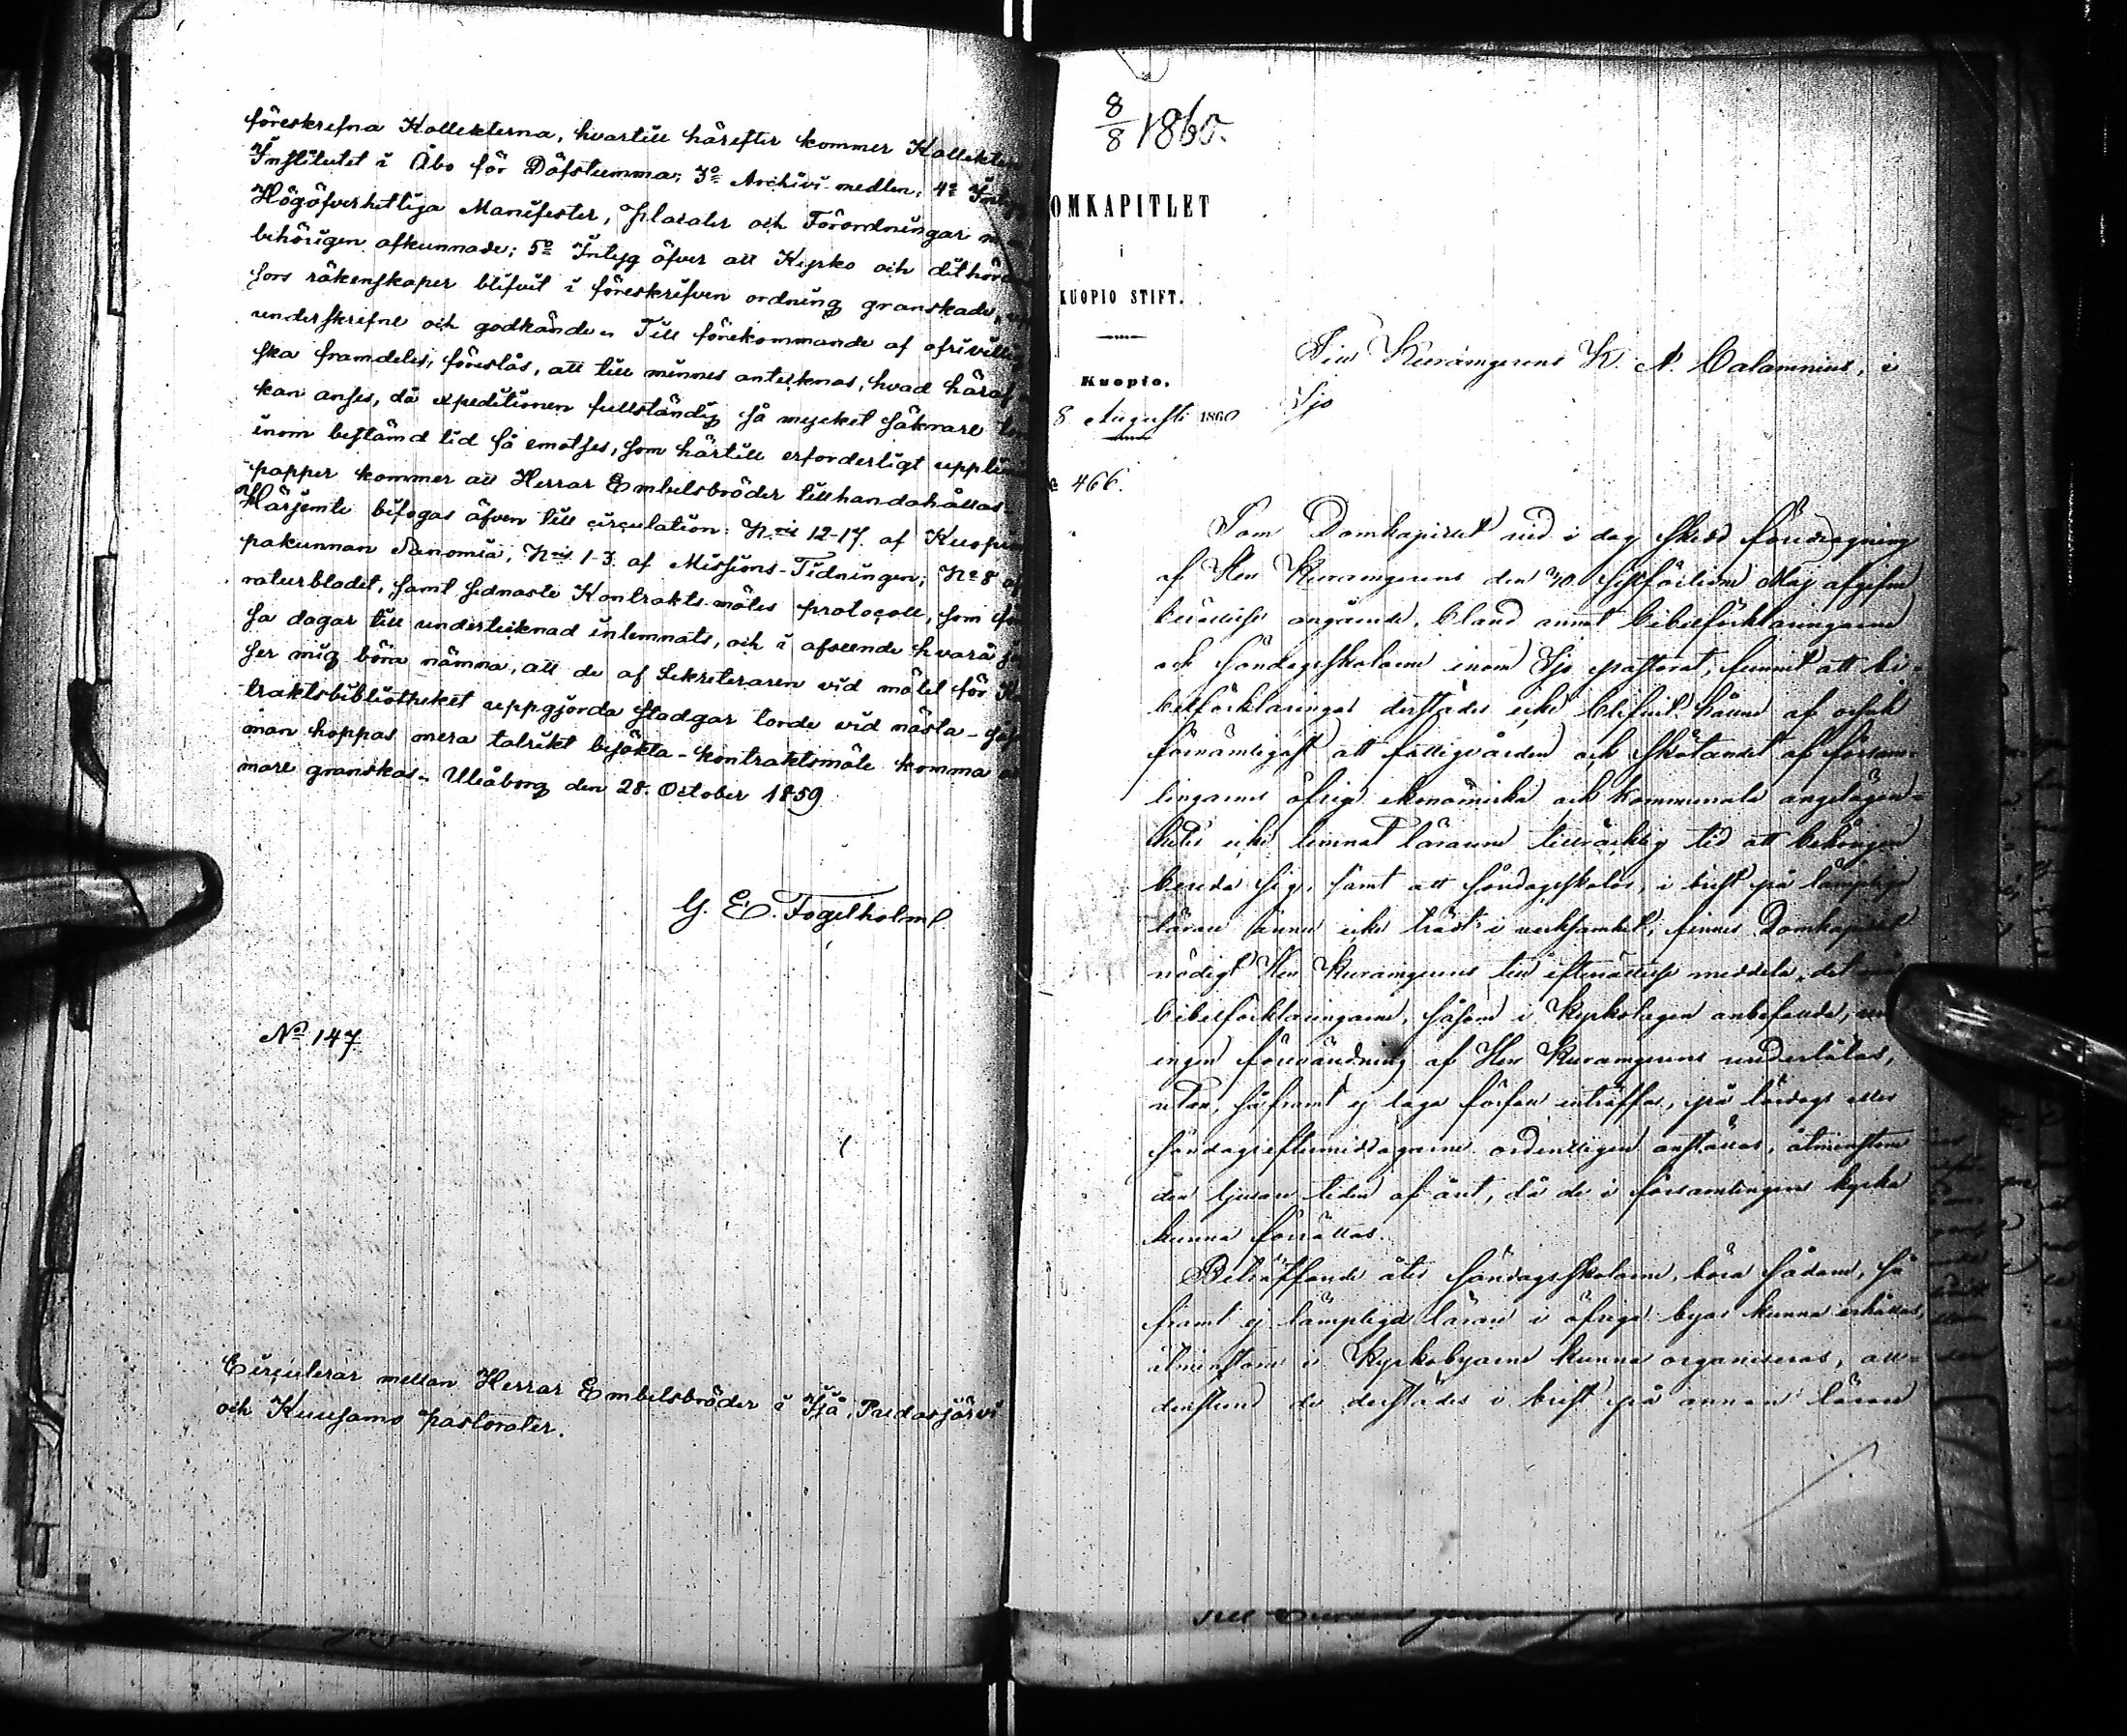 föreskrefna Kollekterna, hvartill härefter kommer Kollekten
Institutet i Åbo för Döfstumma; 3º Archivi-medlen; 4º
Högöfverhetliga Manifester, placater och Förordningar
behörigen afkunnade; 5º Intyg öfver att Kyrko och dithöran
sors räkenskaper blifvit i föreskrifven ordning granskade,
underskrifne och godkände. Till förekommande af
ska framdeles, föreslås, att till minnes antecknas, hvad häraf
kan anses, då expeditionen fullständig så mycket säkrare
inom bestämd tid så emotses, som härtill erforderligt
papper kommer att Herrar Embetsbröder tillhandahållas.
Härjemte bifogas äfven till circulation: N:ris 12-17. af Kuopio
pakunnan Sanomia, N:ris 1-3. af Missions-Tidningen; Nº 8
raturbladet, samt sednaste Kontrakts-mötes protocoll, som
sa dagar till undertecknad inlemnats, och i afseende hvarå
ser mig böra nämna, att de af Sekreteraren vid mötet för
traktsbibliotheket uppgjorda stadgar torde vid nästa -
man hoppas mera talrikt besökta - kontraktsmöte komma
mare granskas. Uleåborg den 28. October 1859
G. E. Fogelholm
Nº 147
Circulerar mellan Herrar Embetsbröder i Ijå, Pudasjärvi
och Kuusamo pastorater.
8/8 1860.
OMKAPITLET
i
KUOPIO STIFT.
Kuopio.
8 Augusti 1860
466.
Till Kuramgerens K. A. Calamnius, i
Ijo
Som Domkapitlet vid i dag skedd föredragning
af Herr Kuramgerens den 30. sistförlidne Maj afgifne
berättelse angående, bland annat bibelförklaringarne
och söndagsskolorne inom Ijo pastorat, funnit att bi-
belförklaringar derstädes icke blifvit hållne af orsak
förnämligast att fattigvården och skötandet af försam-
lingarnes öfriga ekonomiska och kommunala angelägen-
heter icke lemnat lärarne tillräcklig tid att behörigen
bereda sig, samt att söndagsskolor, i brist på lämpliga
lärare ännu icke trädt i verksamhet; finner Domkapitlet
nödigt Herr Kuramgerens till efterrättelse meddela, det
bibelförklaringarne, såsom i Kyrkolagen anbefallde,
ingen förevändning af Herr Kuramgerens underlåtas,
utan, såframt ej laga förfall inträffar, på lördags eller
söndagseftermiddagarne ordentligen anställas, åtminstone
den ljusare tiden af året, då de i församlingens kyrka
kunna förrättas.
Beträffande åter söndagsskolorne, böra sådane, så
framt ej lämpliga lärare i öfriga byar kunna erhållas,
åtminstone i Kyrkobyarne kunna organiseras, all-
denstund de derstädes i brist på annan lärare